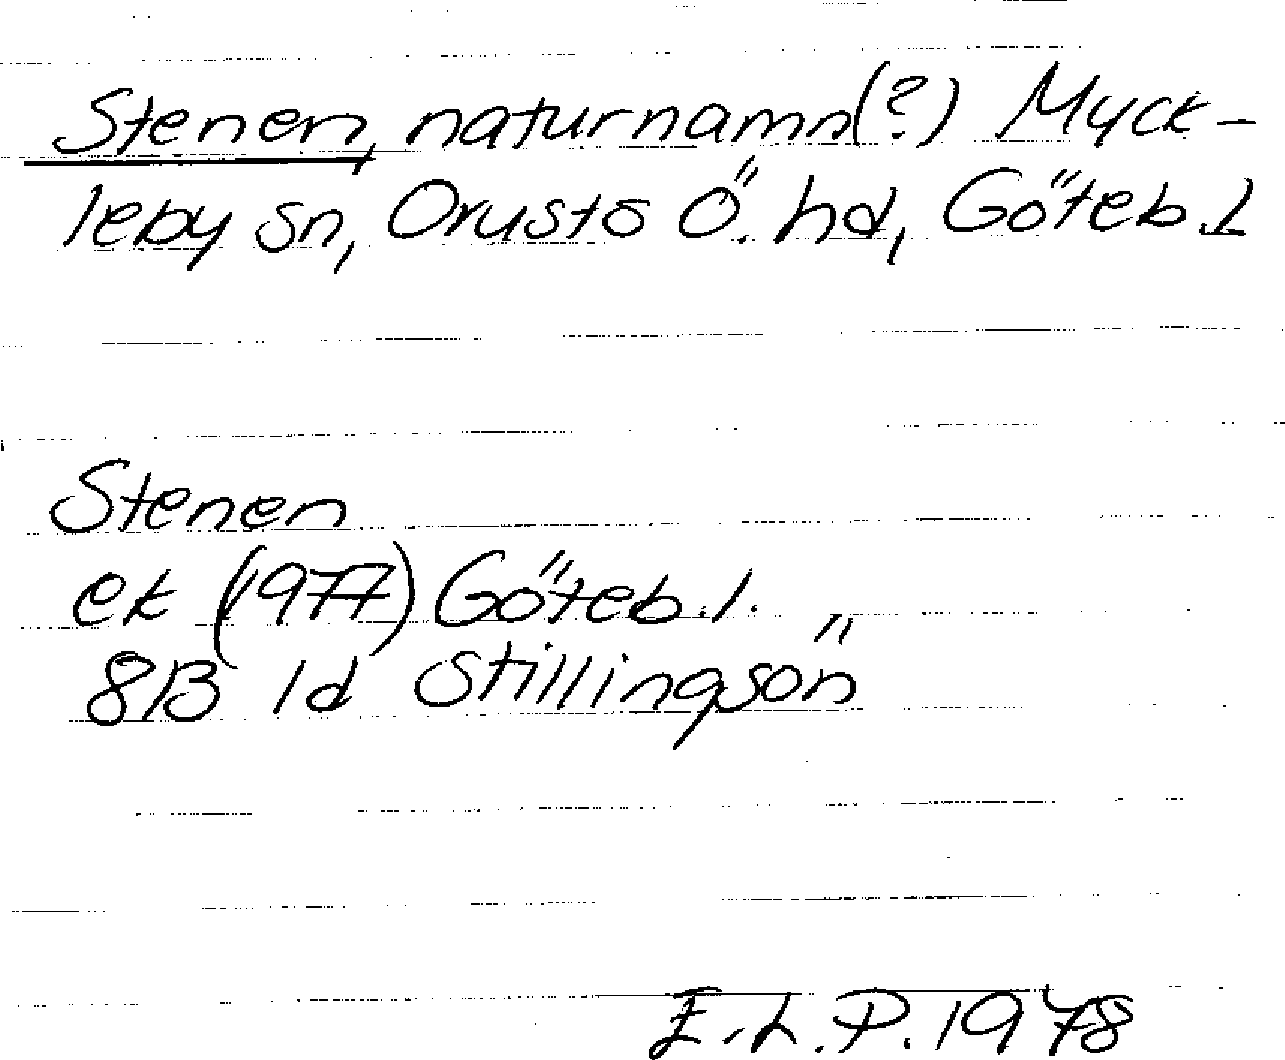 Stenen, naturnamn(?) Myck-
leby sn, Orusts Ö. hd, Göteb. L
Stenen
ek (1977) Göteb. l.
8B 1d Stillingsön
E.L.P. 1978